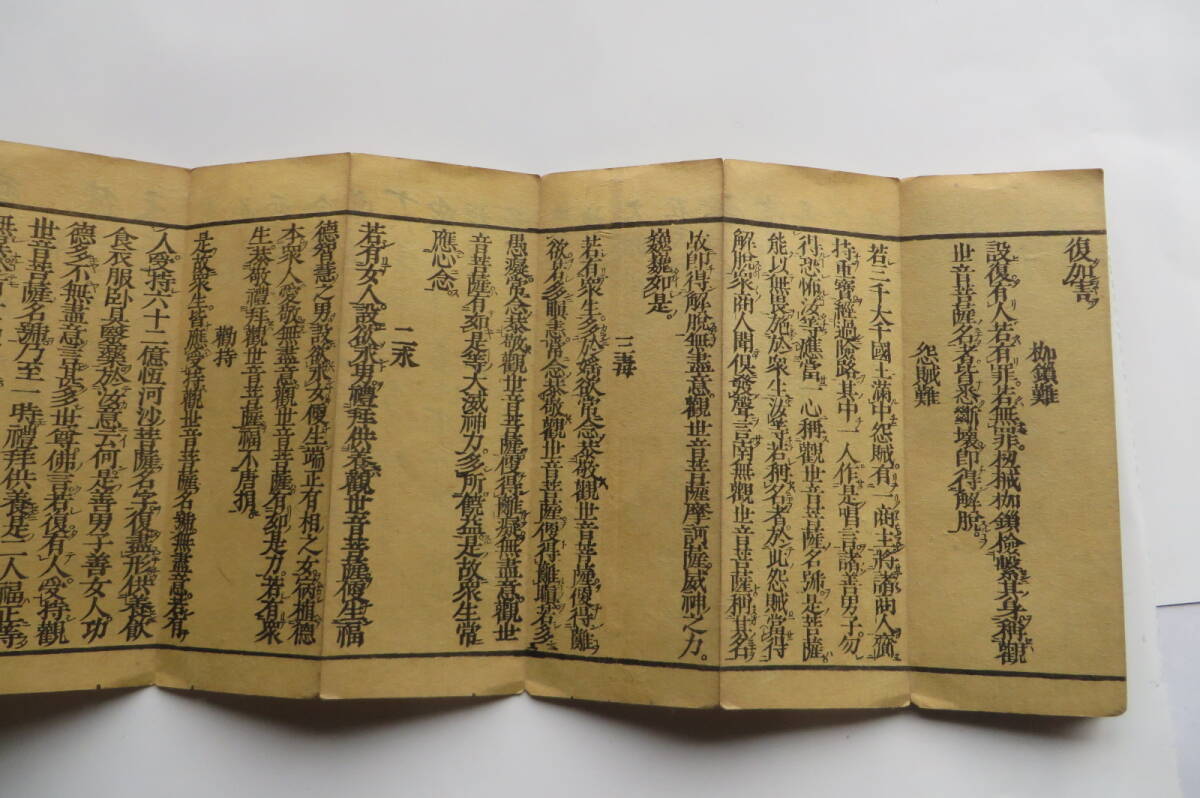 復加害
枷鎖難
設復有人若有罪若無罪杻械枷鎖檢繫其身稱觀
世音菩薩名者皆悉斷壞即得解脫
怨賊難
若三千大千國土滿中怨賊有一商主將諸商人齎
持重寶經過險路其中一人作是唱言諸善男子勿
得恐怖汝等應當一心稱觀世音菩薩名號是菩薩
能以無畏施於衆生汝等若稱名者於此怨賊當得
解脫衆商人聞俱發聲言南無觀世音菩薩稱其名
故即得解脫無盡意觀世音菩薩摩訶薩威神之力
巍巍如是
三毒
若有衆生多於婬欲常念恭敬觀世音菩薩便得離
欲若多瞋恚常念恭敬觀世音菩薩便得離瞋若多
愚癡常念恭敬觀世音菩薩便得離癡無盡意觀世
音菩薩有如是等大威神力多所饒益是故衆生常
應心念
二求
若有女人設欲求男禮拜供養觀世音菩薩便生福
德智慧之男設欲求女便生端正有相之女宿植德
本衆人愛敬無盡意觀世音菩薩有如是力若有衆
生恭敬禮拜觀世音菩薩福不唐捐
勸持
是故衆生皆應受持觀世音菩薩名號無盡意若有
人受持六十二億恆河沙菩薩名字復盡形供養飲
食衣服臥具醫藥於汝意云何是善男子善女人功
德多不無盡意言甚多世尊佛言若復有人受持觀
世音菩薩名號乃至一時禮拜供養是二人福正等